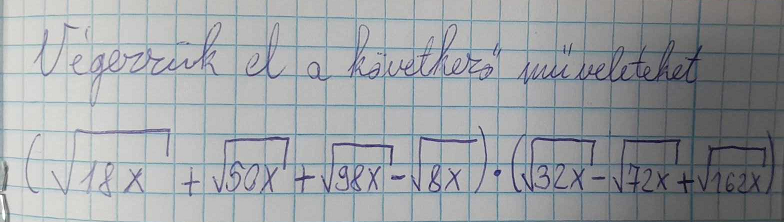 Végezzük el a következő műveleteket
(√18x + √50x + √98x - √8x) · (√32x - √72x + √162x)